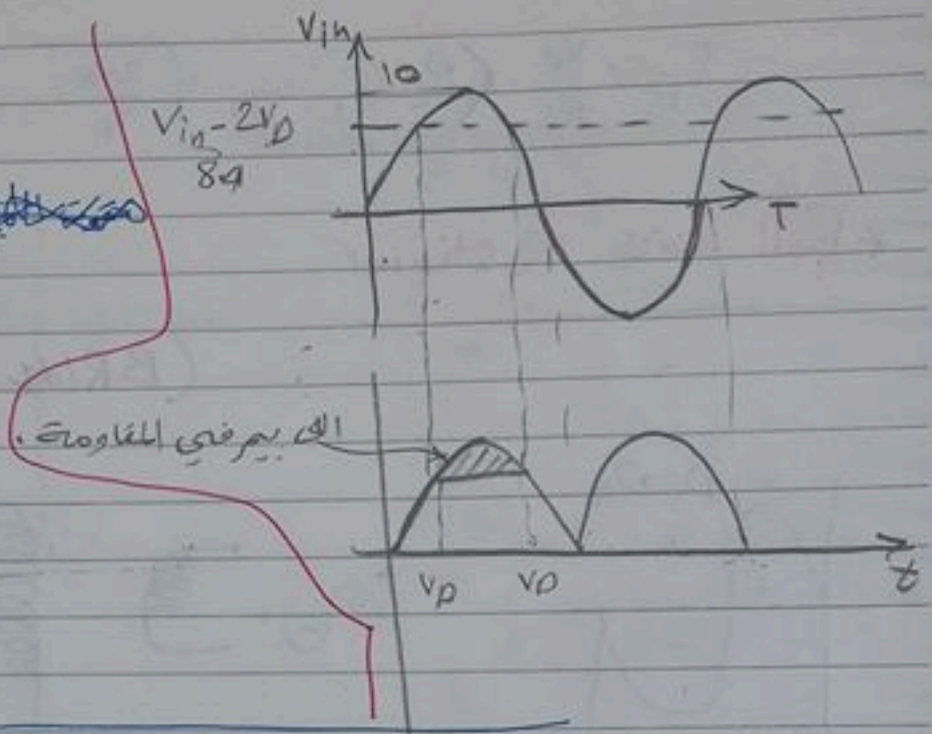 Vin
10
Vin - 2VD
8.4
T
الى بيمر في المقاومة
VD VD
t